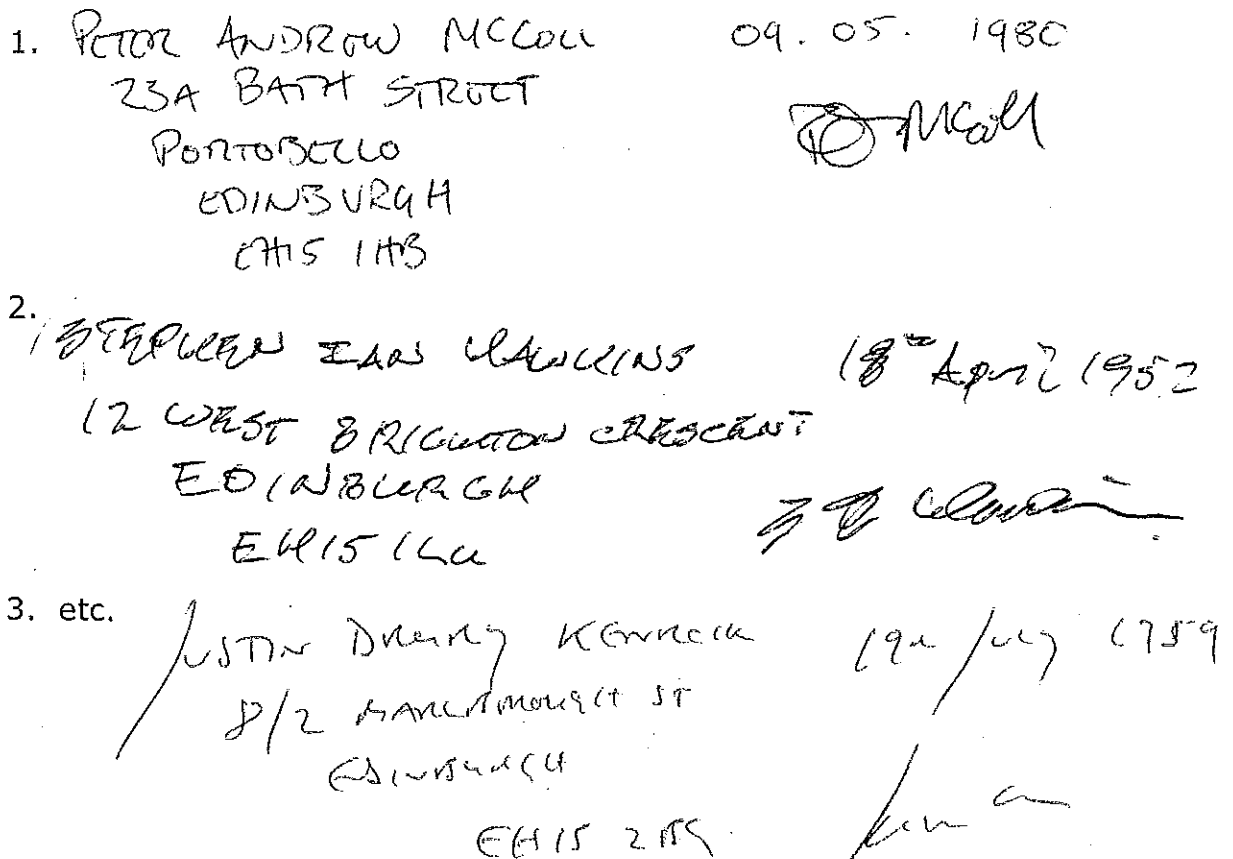 1. PETER ANDREW MCCOLL 09. 05. 1980
23A BATH STREET
PORTOBELLO
EDINBURGH
EH15 1HB
McColl
2. STEPHEN IAN HAWKINS 18th April 1952
12 WEST BRIGHTON CRESCENT
EDINBURGH
EH15 1LU
3. etc. JUSTIN DRURY KENRICK 19th July 1959
8/2 MARLBOROUGH ST
EDINBURGH
EH15 2